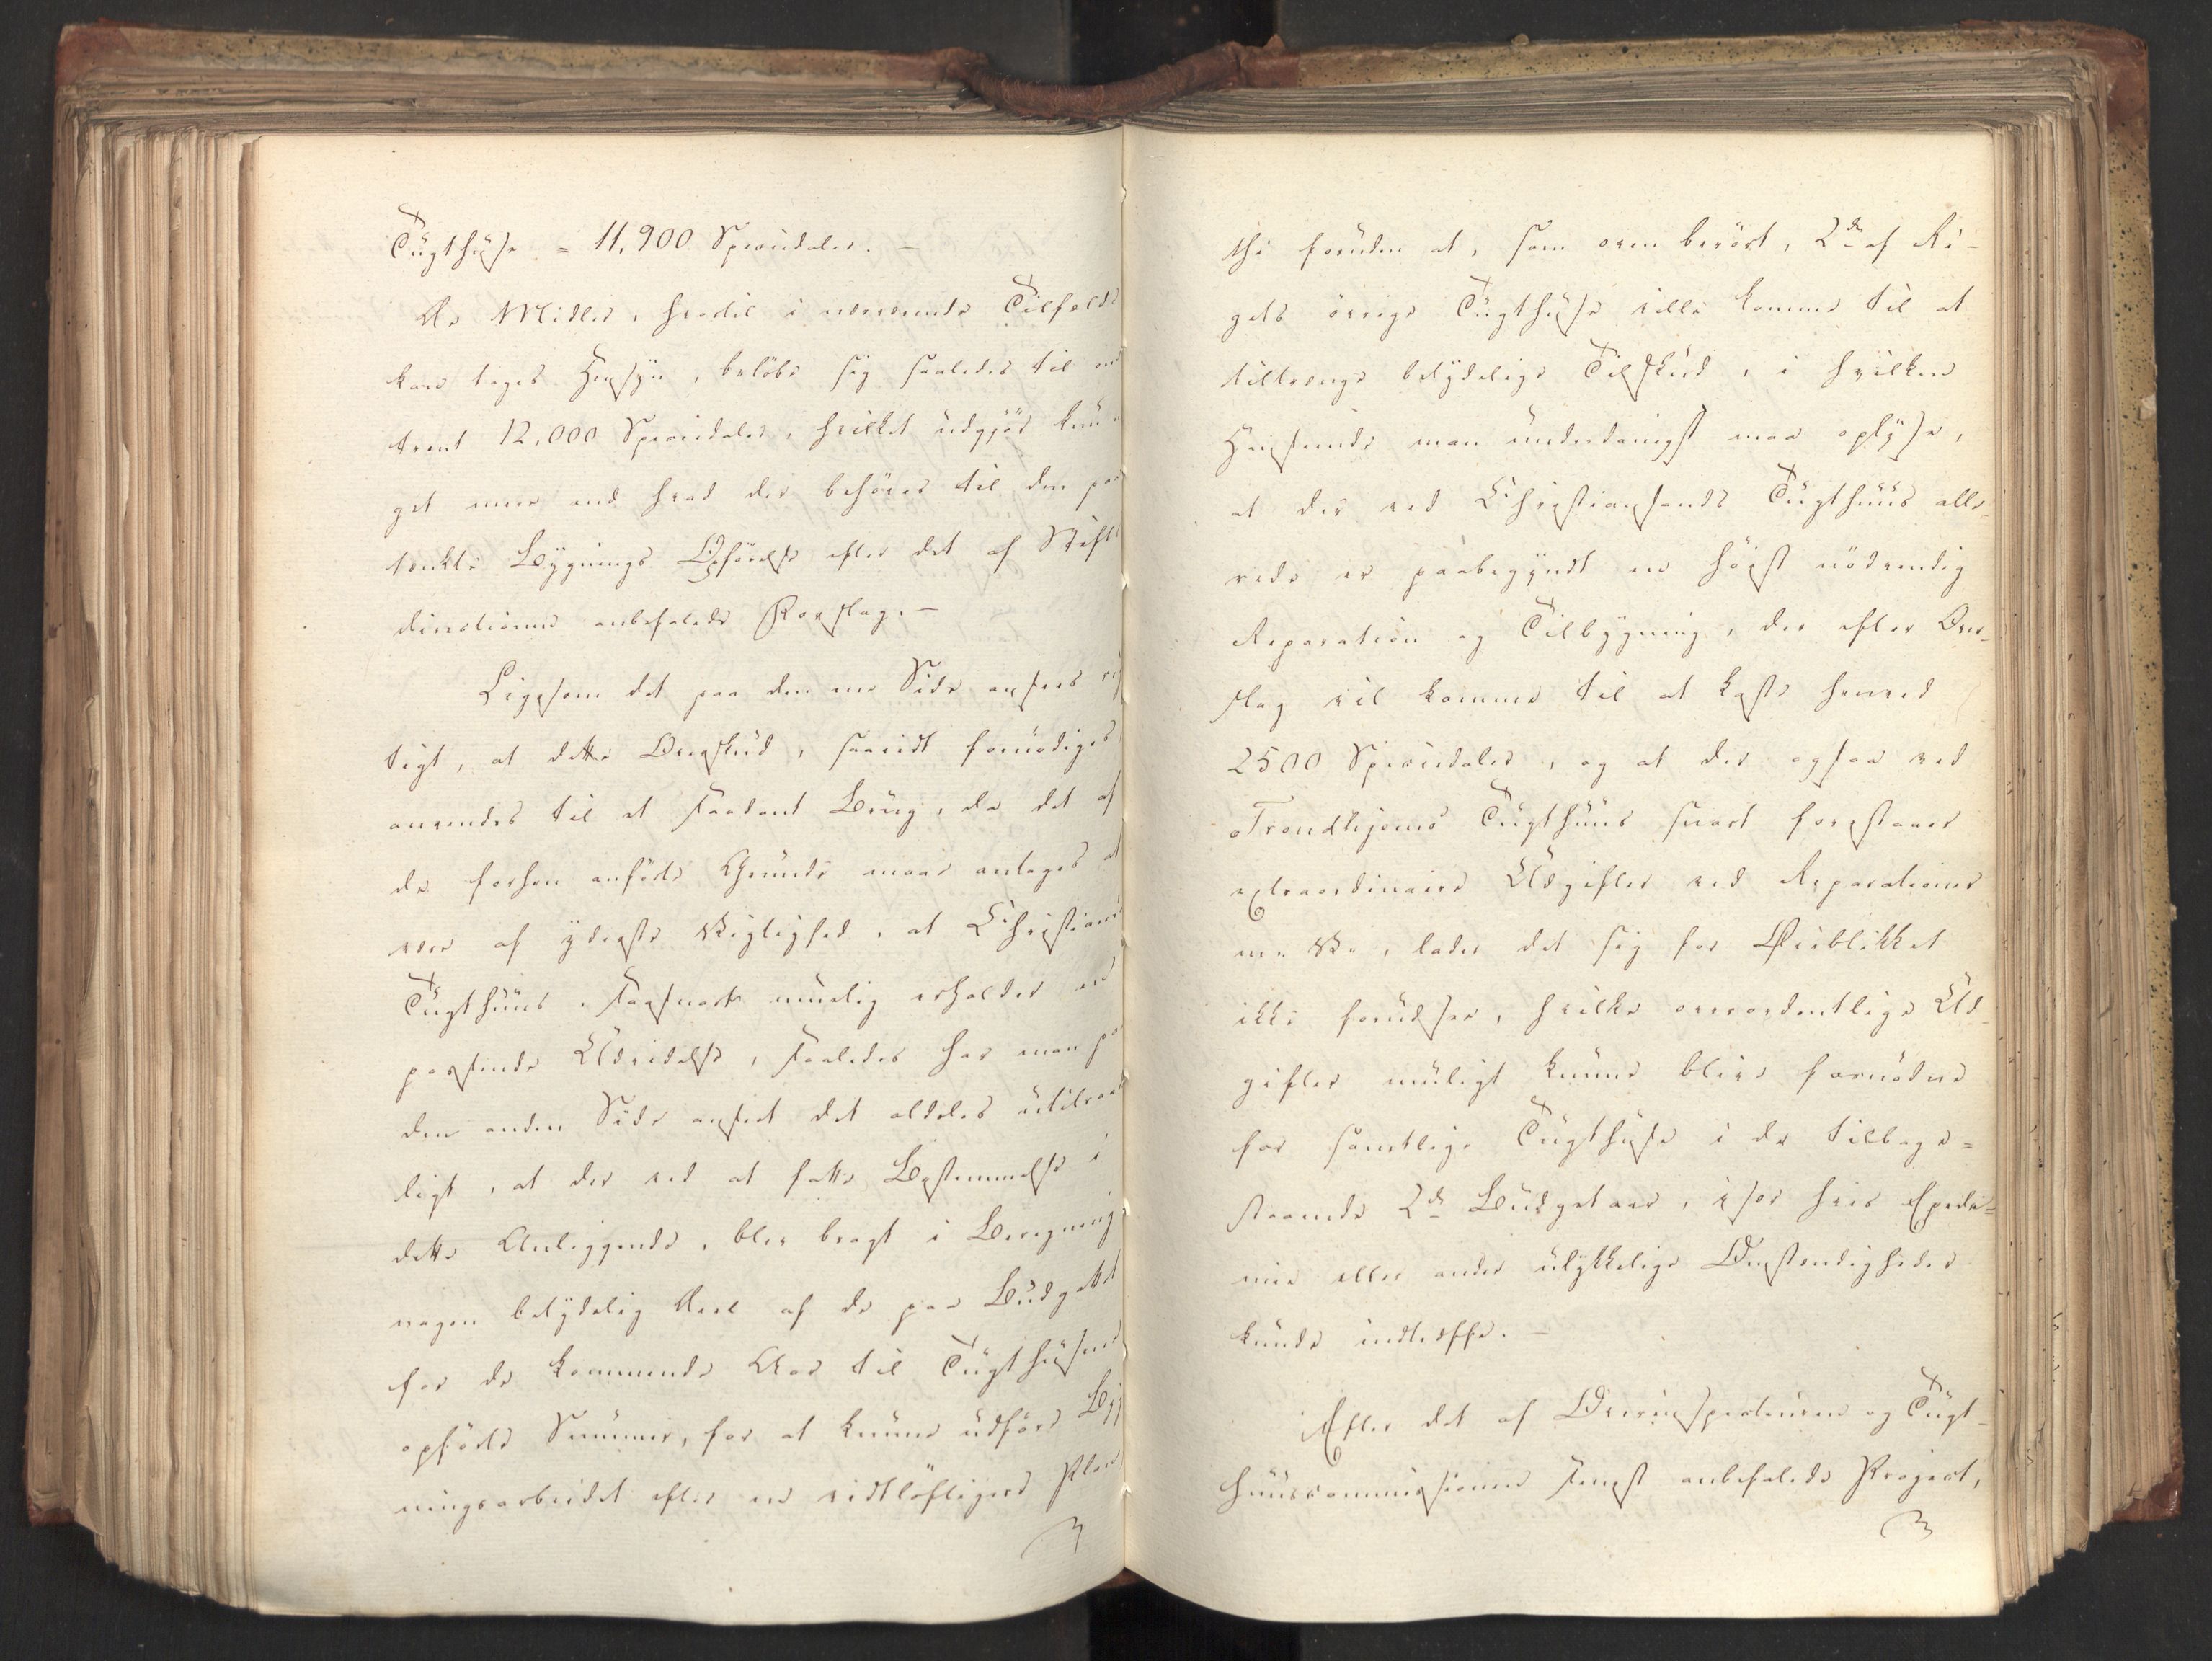 Tugthuse = 11,900 Speciedaler. —
De Midler, hvortil i nærværende Tilfælde
kan tages Hensyn, beløbe sig saaledes til om
trent 12,000 Speciedaler, hvilket udgjør kun
get meer end hvad der behøves til den paa
tænkte Bygnings Opførelse efter det af Stifts
directionen anbefalede Forslag. —
Ligesom det paa den ene Side ansees rig
tigt, at dette Overskud, saavidt fornødiges
anvendes til et saadant Brug, da det af
de forhen anførte Grunde maae antages at
være af yderste Vigtighed, at Christiania
Tugthuus, saasnart muelig erholder en
passende Udvidelse, saaledes har man paa
den anden Side anseet det aldeles utilraade
ligt, at der ved at fatte Bestemmelse i
dette Anliggende, blev bragt i Beregning
nogen betydelig Deel af de paa Budgettet
for de kommende Aar til Tugthusene
opførte Summer, for at kunne udføre Byg
ningsarbeidet efter en vidtløftigere Plan
thi foruden at, som oven berørt, 2de af Ri-
gets øvrige Tugthuse ville komme til at
tiltrænge betydelige Tilskud, i hvilken
Henseende man underdanigst maa oplyse,
at der ved Christiansands Tugthuus alle-
rede er paabegyndt en høist nødvendig
Reparation og Tilbygning, der efter Over-
slag vil komme til at koste henved
2500 Speciedaler, og at der ogsaa ved
Trondhjems Tugthuus snart forestaaer
extraordinaire Udgifter ved Reparationer
m. v., lader det sig for Øieblikket
ikke forudsee, hvilke overordentlige Ud-
gifter muligt kunne blive fornødne
for samtlige Tugthuse i de tilbage=
staaende 2de Budgetaar, især hvis Epide=
mie eller andre ulykkelige Omstændigheder
kunde indtræffe. —
Efter det af Overinspecteuren og Tugt-
huuscommissionen senest anbefalede Project,